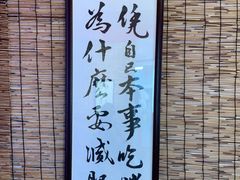 凭自己本事吃
為什麽要減肥